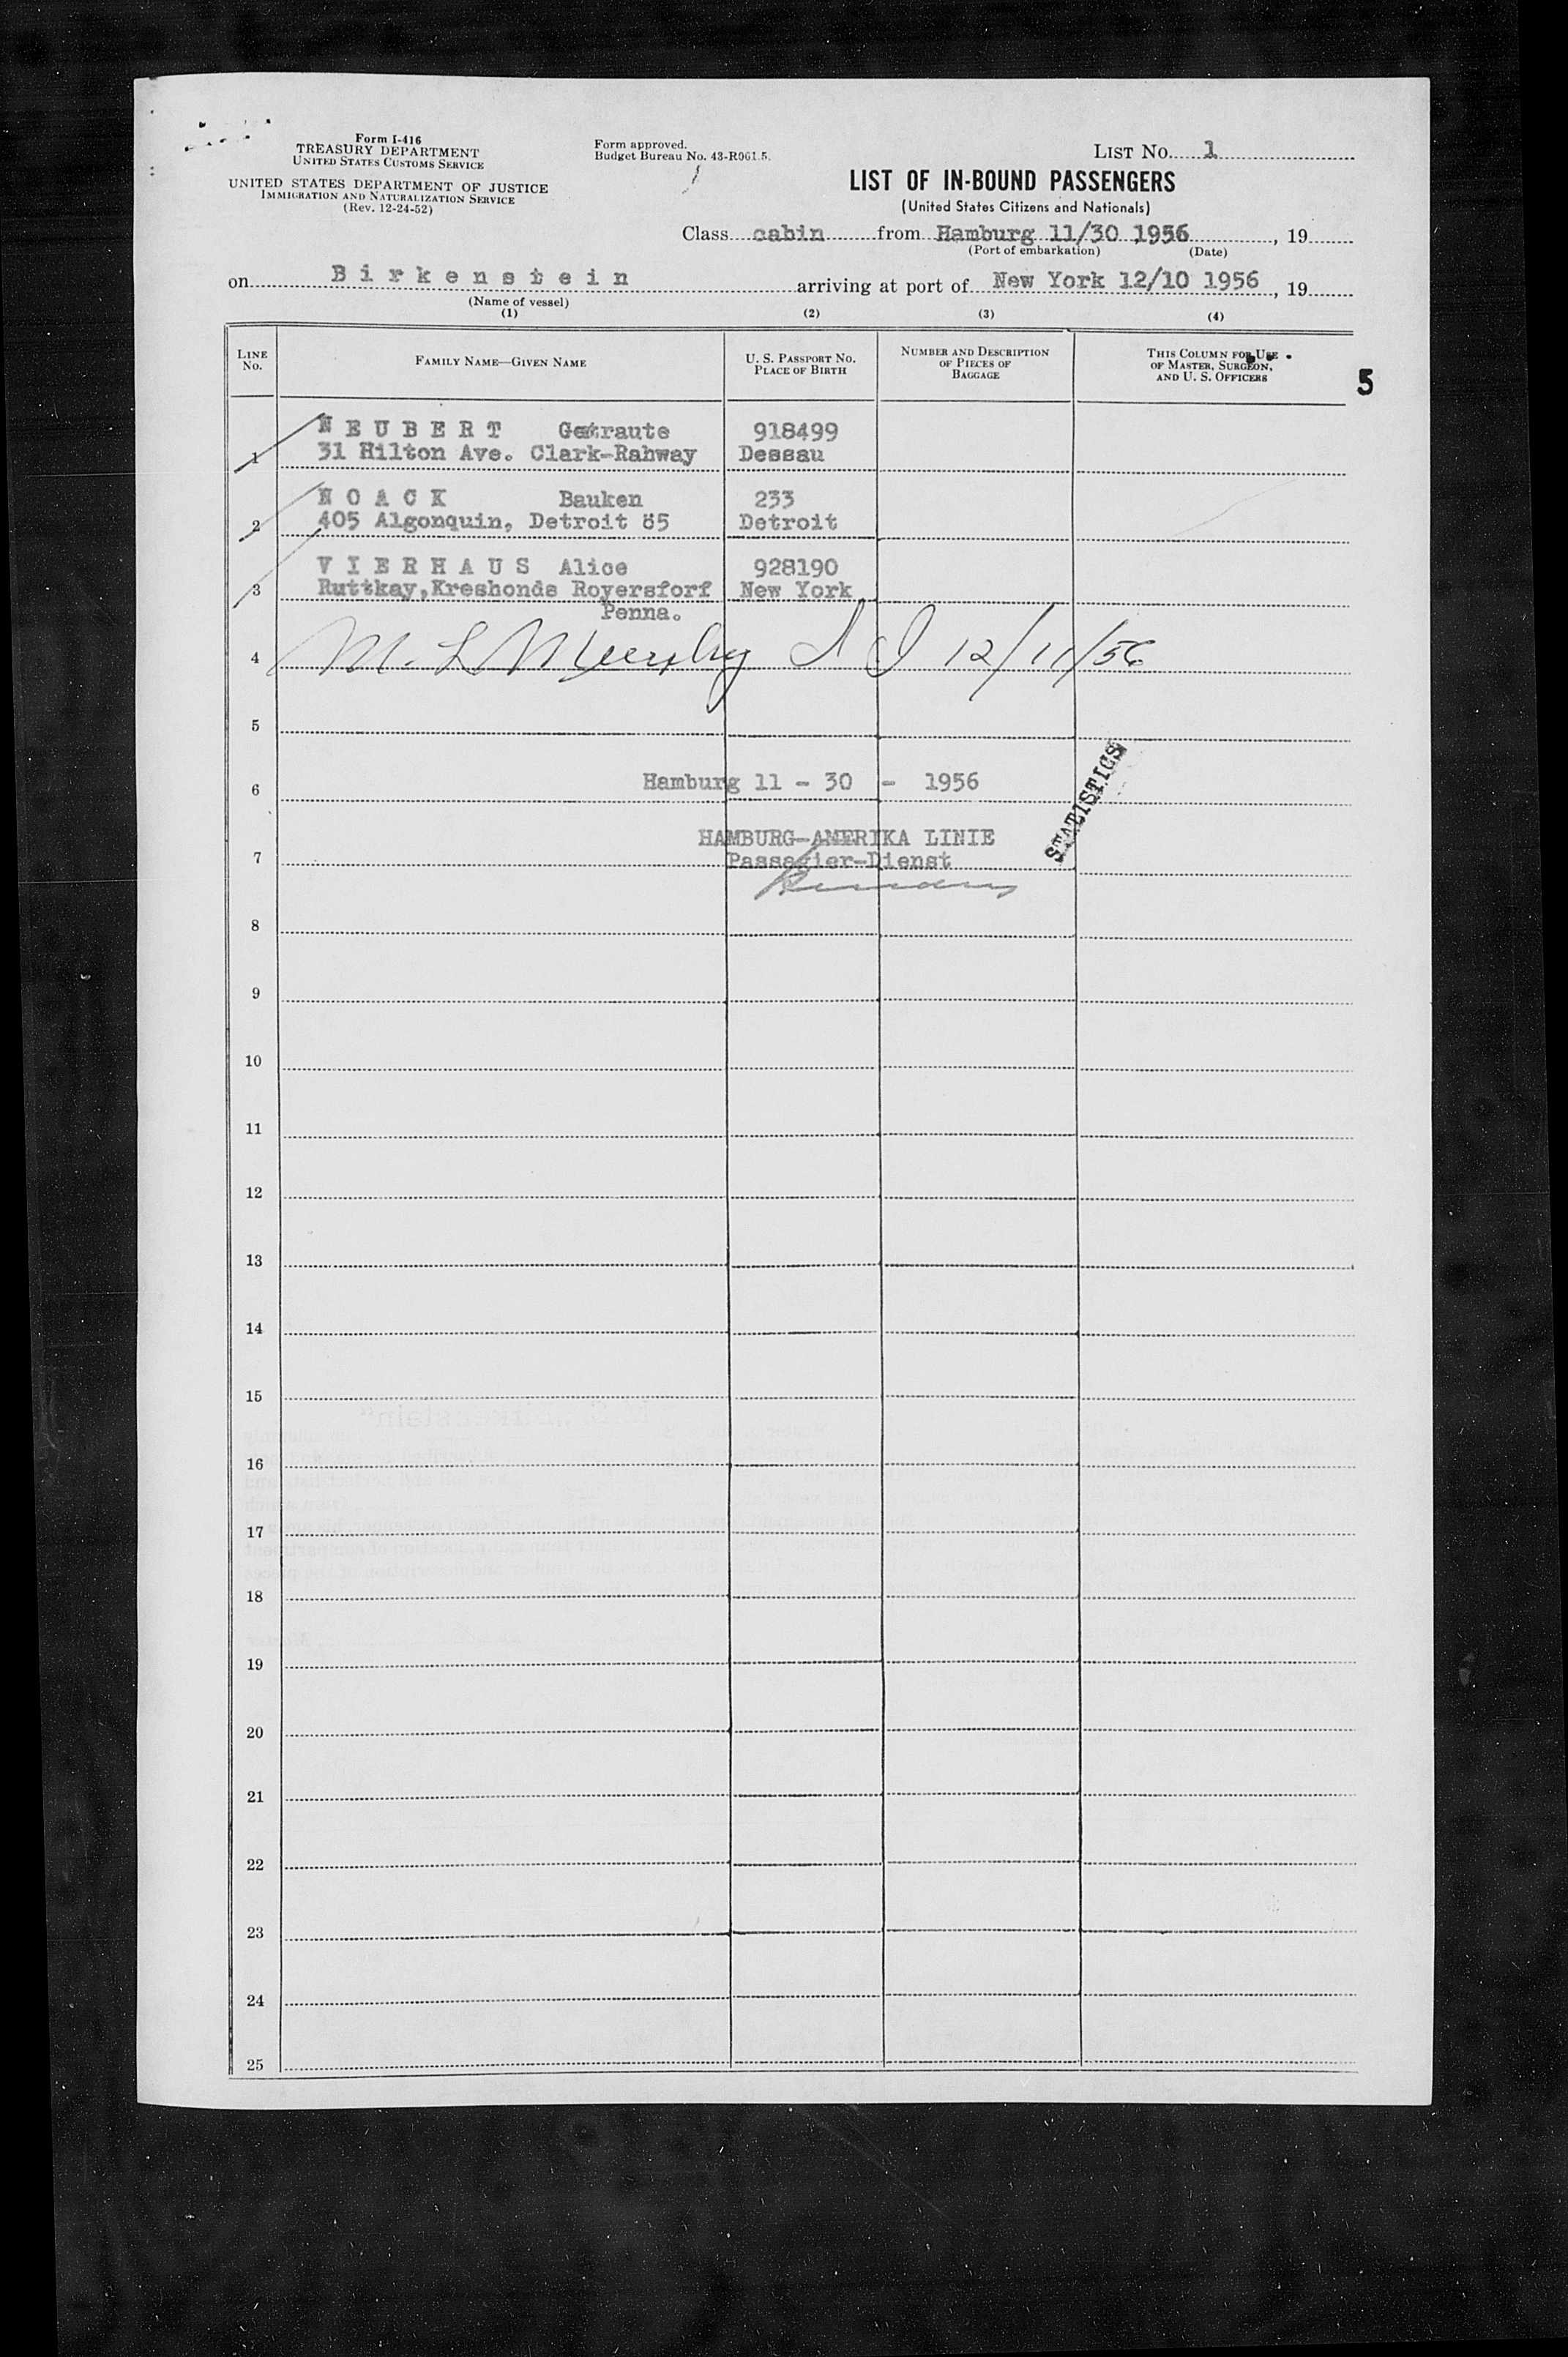 Form I-416
TREASURY DEPARTMENT
UNITED STATES CUSTOMS SERVICE
UNITED STATES DEPARTMENT OF JUSTICE
IMMIGRATION AND NATURALIZATION SERVICE
(Rev. 12-24-52)
Form approved.
Budget Bureau No. 43-R061.5.
LIST NO. 1
LIST OF IN-BOUND PASSENGERS
(United States Citizens and Nationals)
Class cabin from Hamburg 11/30 1956, 19
(Port of embarkation) (Date)
on Birkenstein arriving at port of New York 12/10 1956, 19
(Name of vessel)
(1) (2) (3) (4)
LINE NO. FAMILY NAME—GIVEN NAME U. S. PASSPORT NO. PLACE OF BIRTH NUMBER AND DESCRIPTION OF PIECES OF BAGGAGE THIS COLUMN FOR USE OF MASTER, SURGEON, AND U. S. OFFICERS
5
NEUBERT 918499
1 31 Hilton Ave. Clark-Rahway Dessau
NOACK Bauken 233
2 405 Algonquin, Detroit 85 Detroit
VIERHAUS Alice 928190
3 Ruttkay,Kreshonds Royersforf New York
Penna.
4 M. L Murphy 12/11/56
5
6 Hamburg 11 - 30 - 1956
STATISTICS
HAMBURG-AMERIKA LINIE
7 Passagier-Dienst
8
9
10
11
12
13
14
15
16
17
18
19
20
21
22
23
24
25